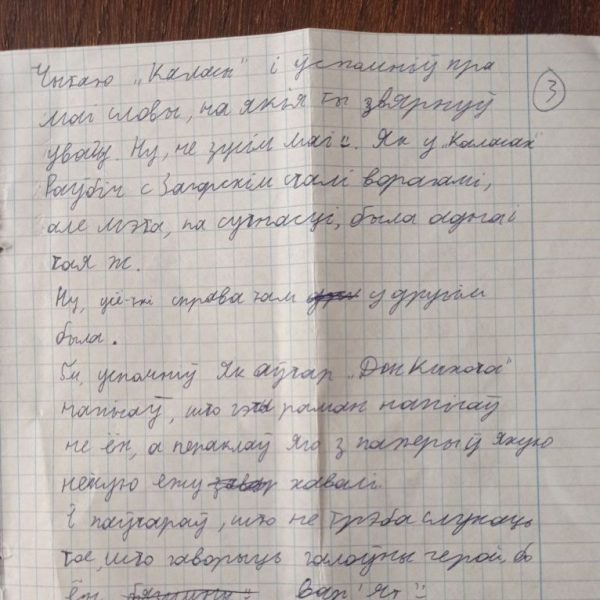 Чытаю „Каласы" і ўспомніў пра
3
мае словы, на якія ты звярнуў
увагу. Ну, не зусім мае :. Як у „Каласах"
Раўбіч с Загорскім сталі ворагамі,
але мэта, па сутнасці, была адна і
тая ж.
Ну, усё-ткі справа там у другім
была.
ўспомніў як аўтар „Дон Кихота"
напісаў, што гэты раман напісаў
не ён, а пераклаў яго з паперы ў якую
нейкую ежу хавалі
І паўтараў, што не трэба слухаць
тое, што гаворыць галоўны герой, бо
ён вар'ят